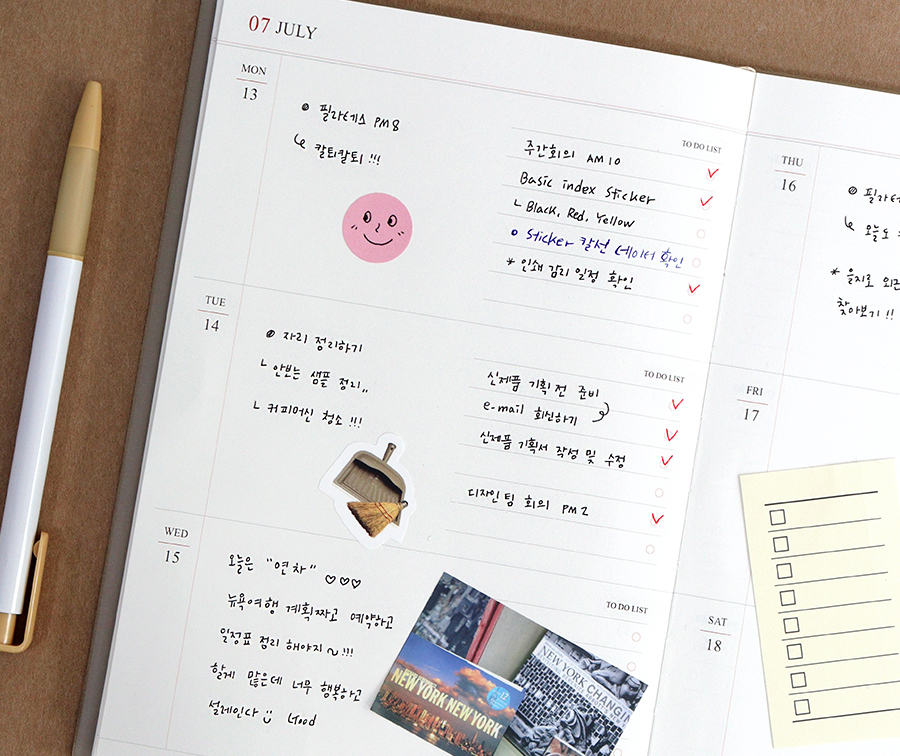 07 JULY
MON
13
필라테스 PM 8
칼퇴칼퇴 !!!
TO DO LIST
주간회의 AM 10
Basic index sticker
Black, Red, Yellow
Sticker 칼선 데이터 확인
* 인쇄 감리 일정 확인
TUE
14
자리 정리하기
안보는 샘플 정리,,
커피머신 청소 !!!
TO DO LIST
신제품 기획전 준비
e-mail 회신하기
신제품 기획서 작성 및 수정
디자인팀 회의 PM 2
WED
15
오늘은 "연차" ♡♡♡
뉴욕여행 계획짜고 예약하고
일정표 정리 해야지~!!!
할게 많은데 너무 행복하고
설레인다 Good
TO DO LIST
NEW YORK NEW YORK
NEW YORK CHANGING
THU
16
오늘도
* 을지로 외근
찾아보기 !!
FRI
17
SAT
18